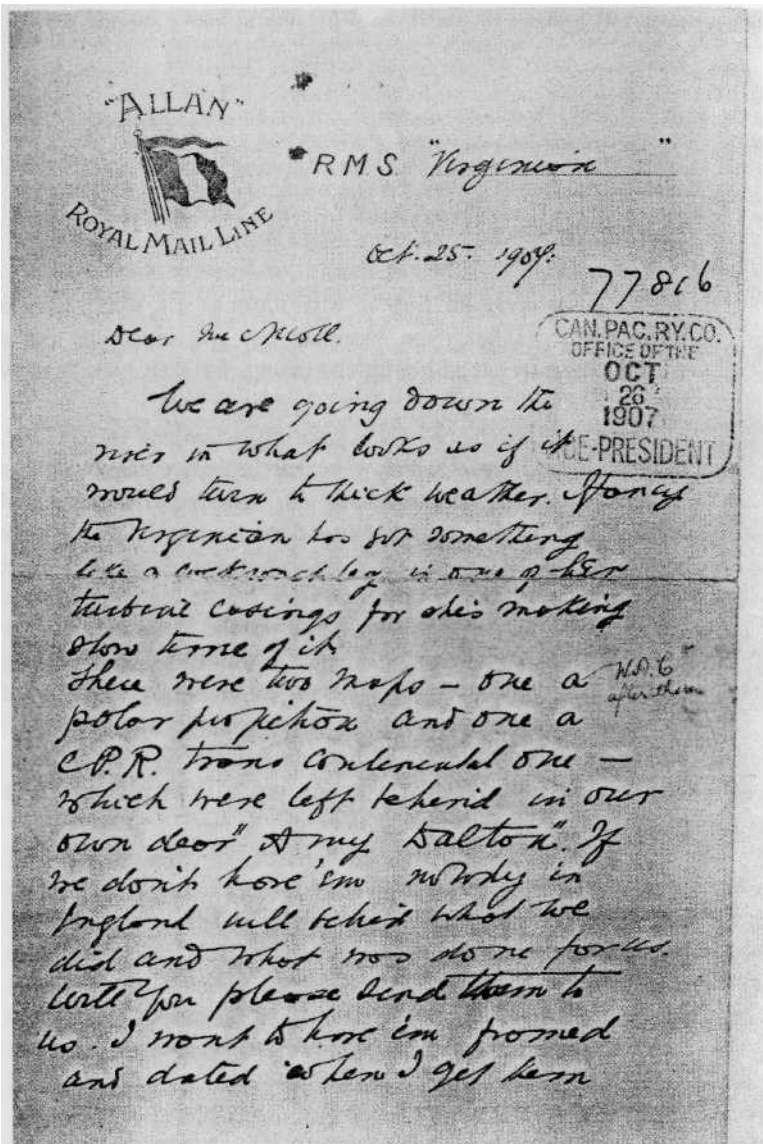 "ALLAN"
ROYAL MAIL LINE
RMS "Virginian"
Oct. 25. 1907.
77816
CAN. PAC. RY. CO.
OFFICE OF THE
OCT
26
1907
VICE-PRESIDENT
Dear McNicoll.
We are going down the
river in what looks as if it
would turn to thick weather. I fancy
the Virginian has got something
like a cockroach leg in one of her
turbine casings for she's making
slow time of it
There were two maps – one a
W.D.C
after them
polar projection and one a
C.P.R. trans continental one –
which were left behind in our
own dear "Amy Dalton". If
we don't have 'em nobody in
England will believe what we
did and what was done for us.
Will you please send them to
us. I want to have 'em framed
and dated when I get them